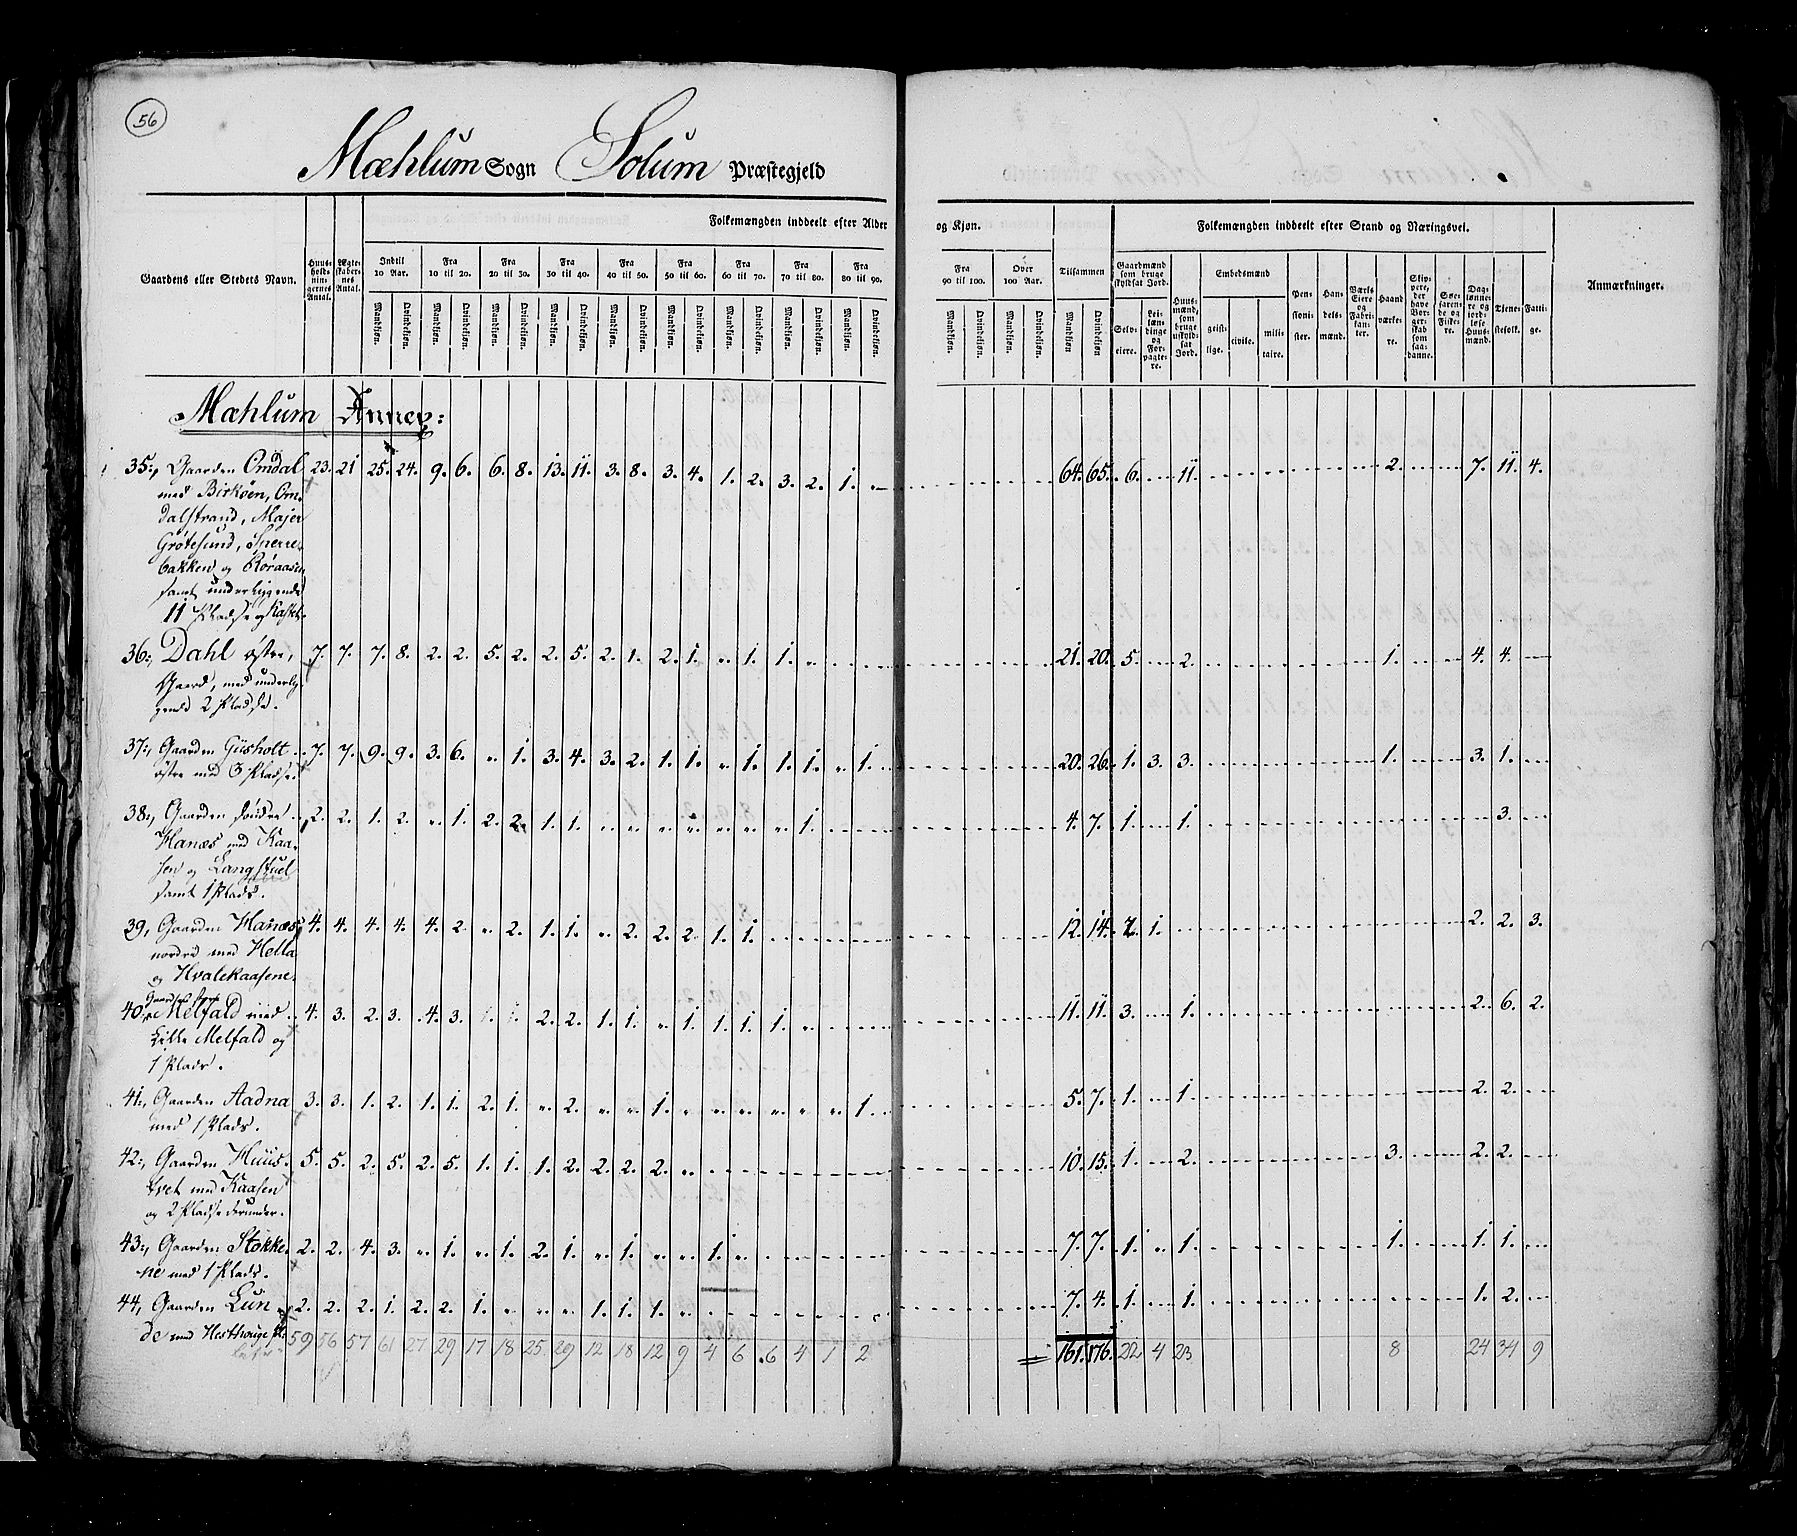 56
Mæhlum Sogn Solum Præstegjeld
Folkemængden inddeelt efter Alder og Kjøn. Folkemængden inddeelt efter Stand og Næringsvei.
Gaardens eller Stedets Navn. Huusholdningernes Antal. Ægteskabernes Antal. Indtil 10 Aar. Fra 10 til 20. Fra 20 til 30. Fra 30 til 40. Fra 40 til 50. Fra 50 til 60. Fra 60 til 70. Fra 70 til 80. Fra 80 til 90. Fra 90 til 100. Over 100 Aar. Tilsammen Gaardmænd som bruge skyldsat Jord. Huusmænd, som bruge uskyldsat Jord. Embedsmænd Pensionister. Handelsmænd. Værks Eiere og Fabrikanter. Haandværkere. Skippere, der have Borgerskab som saadanne. Søefarende og Fiskere. Daglønnere og jordløse Huusmænd. Tjenestefolk. Fattige. Anmærkninger.
Mandkjøn. Qvindekjøn. Mandkjøn. Qvindekjøn. Mandkjøn. Qvindekjøn. Mandkjøn. Qvindekjøn. Mandkjøn. Qvindekjøn. Mandkjøn. Qvindekjøn. Mandkjøn. Qvindekjøn. Mandkjøn. Qvindekjøn. Mandkjøn. Qvindekjøn. Mandkjøn. Qvindekjøn. Mandkjøn. Qvindekjøn. Mandkjøn Qvindekjøn. Selveiere. Leilændinge og Forpagtere. geistlige. civile. militaire.
Mæhlum Annex:
35:, Gaarden Omdal 23. 21 25. 24. 9. 6. 6. 8. 13. 11. 3. 8. 3. 4. 1. 2. 3. 2. 1. 64. 65. 6. 11. 2. 7. 11. 4.
med Birköen, Om-
dalstrand, Majer
Grötesund, Sperre-
bakken og Röraasen
samt underliggende
11 Pladse og Kastet.
36:, Dahl östre, 7. 7. 7. 8. 2. 2. 5. 2. 2. 5. 2. 1. 2. 1. " 1. 1. " 21. 20. 5. 2. 1. 4. 4.
Gaard, med underlig-
gende 2 Pladse.
37:, Gaarden Giisholt 7. 7. 9. 9. 3. 6. " 1. 3. 4. 3. 2. 1. 1. " 1. 1. 1. " 1. 20. 26. 1. 3. 3. 1. 3. 1.
östre med 3 Pladse.
38:, Gaarden söndre 2. 2. 1. 2. " 1. 2. 2. 1. 1. " " " " " " " 1. 4. 7. 1. 1. 3.
Hanæs med Kaa-
sen og Langstuel
samt 1 Plads.
39, Gaarden Hanæs 4. 4. 4. 4. 4. 2. " 2. 1. 1. " 2. 2. 2. 1. 1. 12. 14. 2. 1. 2. 2. 3.
nordre med Hella
og Hvalekaasene.
Gaarden store
40:, Melfald med 4. 3. 2. 3. 4. 3. 1. 1. 2. 2. 1. 1. " 1. 1. 1. 1. " 11. 11. 3. 1. 2. 6. 2.
Lille Melfald og
1 Plads.
41:, Gaarden Aadna 3. 3. 1. 2. 1. 1. 2. 1. " 2. " " 1. " " " " " " 1. 5. 7. 1. 1. 2. 2.
med 1 Plads.
42:, Gaarden Huus- 5. 5. 2. 5. 2. 5. 1. 1. 1. 2. 2. 2. 2. " 10. 15. 1. 2. 3. 2. 2.
tvet med Kaasen
og 2 Pladse derunder.
43:, Gaarden Stokke- 2. 2. 4. 3. " 1. " 1. 2. 1. " 1. " " 1. " 7. 7. 1. " 1. 1. 1. 1.
ne med 1 Plads.
44, Gaarden Lun- 2. 2. 2. 1. 2. 2. 1. " " " 1. 1. 1. " 7. 4. 1. 1. 1. 2.
de med Hesthauge
59 56 57 61 27 29 17 18 25 29 12 18 12 9 4 6 6 4 1 2 161. 176. 22 4 23 8 24 34 9